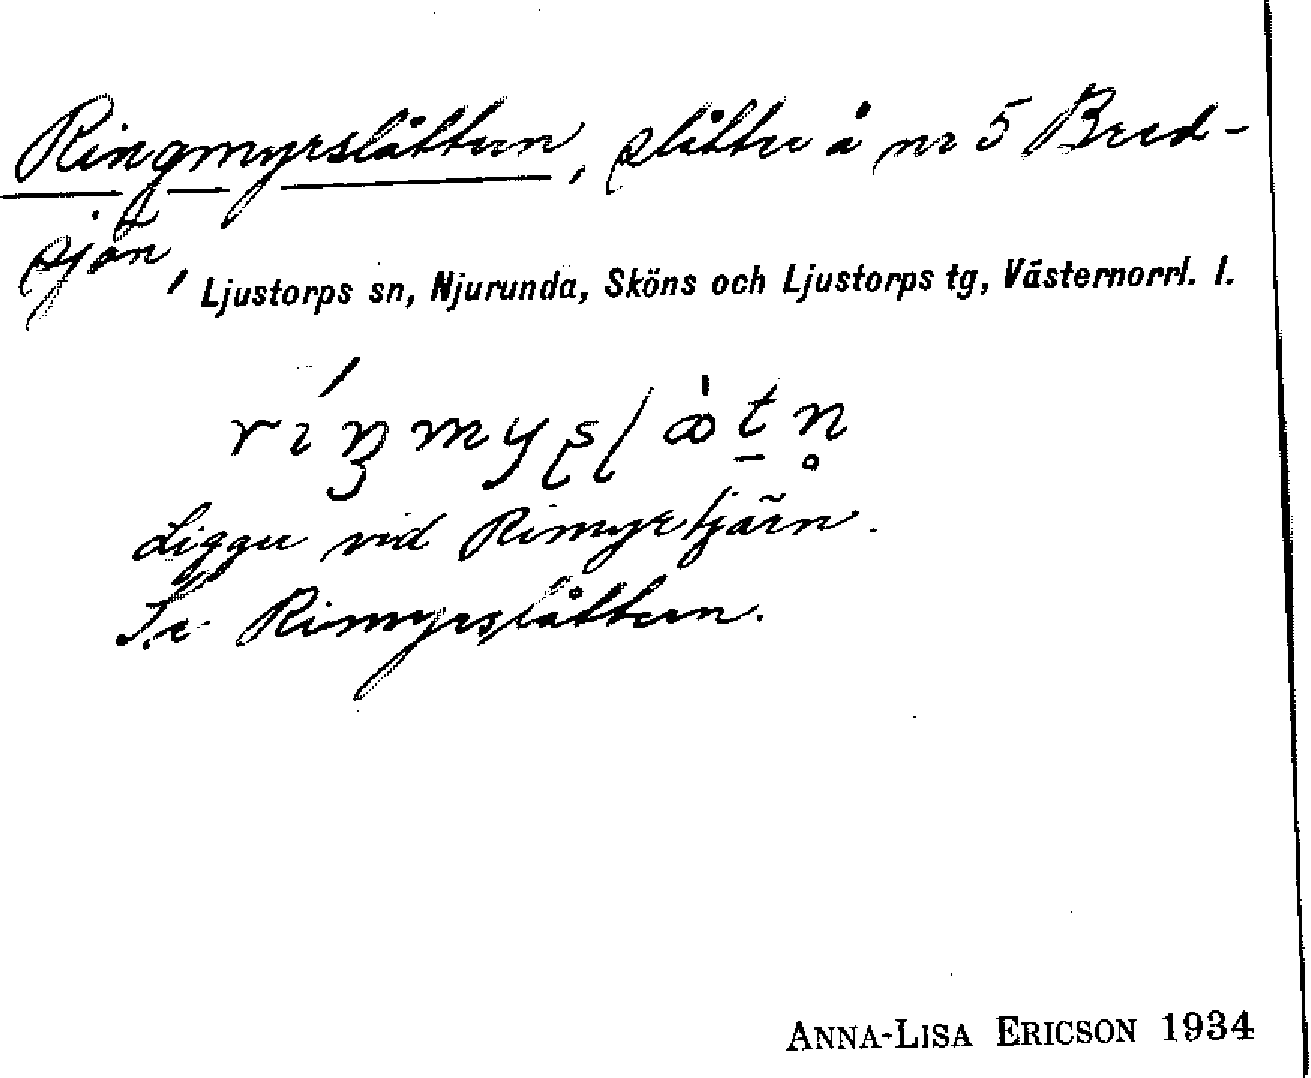 Ringmyrslåttern, slåtter å nr 5 Bred-
sjön,
Ljustorps sn, Njurunda, Sköns och Ljustorps tg, Västernorrl. l.
Ligger vid Rimyrtjärn.
Se Rimyrslåttern.
ANNA-LISA ERICSON 1934